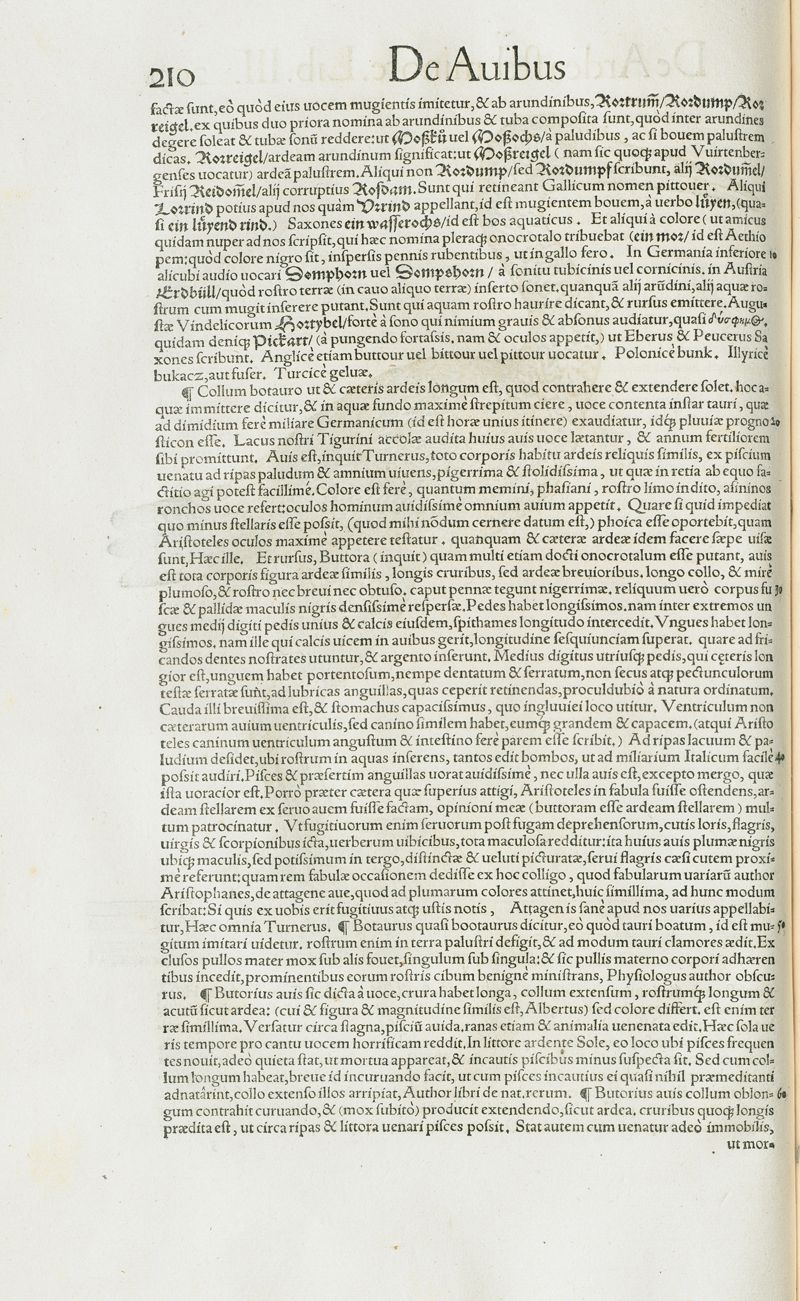 210 De Auibus
factæ ſunt, eò quòd eius uocem mugientis imitetur, & ab arundinibus, Rortrum̃/Rordump/Ror
reigel. ex quibus duo priora nomina ab arundinibus & tuba compoſita ſunt, quòd inter arundines
degere ſoleat & tubæ ſonũ reddere: ut Moßkü uel Moßochs/à paludibus, ac ſi bouem paluſtrem
dicas. Rorreigel/ardeam arundinum ſignificat: ut Moßreigel (nam ſic quoq; apud Vuirtenber⸗
genſes uocatur) ardeã paluſtrem. Aliqui non Rordump/ſed Rordumpf ſcribunt, alij Rordum̃el/
Friſij Reidom̃el/alij corruptius Roſdam. Sunt qui retineant Gallicum nomen pittouer. Aliqui
Lorrind potius apud nos quàm Vrrind appellant, id eſt mugientem bouem, à uerbo lüyen, (qua⸗
ſi ein lüyend rind.) Saxones ein waſſerochs/id eſt bos aquaticus. Et aliqui à colore (ut amicus
quidam nuper ad nos ſcripſit, qui hæc nomina pleraq; onocrotalo tribuebat (ein mor/ id eſt Aethio
pem: quòd colore nigro ſit, inſperſis pennis rubentibus, ut in gallo fero. In Germania inferiore 10
alicubi audio uocari Somphorn uel Sompshorn/ à ſonitu tubicinis uel cornicinis. in Auſtria
Erdbüll/quòd roſtro terræ (in cauo aliquo terræ) inſerto ſonet. quanquã alij arũdini, alij aquæ ro⸗
ſtrum cum mugit inſerere putant. Sunt qui aquam roſtro haurire dicant, & rurſus emittere. Augu⸗
ſtæ Vindelicorum Hortybel/fortè à ſono qui nimium grauis & abſonus audiatur, quaſi δύσφημ<unk>Θ.
quidam deniq; Pickart/ (à pungendo fortaſsis. nam & oculos appetit,) ut Eberus & Peucerus Sa
xones ſcribunt. Anglicè etiam buttour uel bittour uel pittour uocatur. Polonicè bunk. Illyricè
bukacz, aut fuſer. Turcicè geluæ.
¶ Collum botauro ut & cæteris ardeis longum eſt, quod contrahere & extendere ſolet. hoc a⸗
quæ immittere dicitur, & in aquæ fundo maximè ſtrepitum ciere, uoce contenta inſtar tauri, quæ
ad dimidium ferè miliare Germanicum (id eſt horæ unius itinere) exaudiatur, idq́; pluuiæ progno 20
ſticon eſſe. Lacus noſtri Tigurini accolæ audita huius auis uoce lætantur, & annum fertiliorem
ſibi promittunt. Auis eſt, inquit Turnerus, toto corporis habitu ardeis reliquis ſimilis, ex piſcium
uenatu ad ripas paludum & amnium uiuens, pigerrima & ſtolidiſsima, ut quæ in retia ab equo fa⸗
ctitio agi poteſt facillimè. Colore eſt ferè, quantum memini, phaſiani, roſtro limo indito, aſininos
ronchos uoce refert: oculos hominum auidiſsimè omnium auium appetit. Quare ſi quid impediat
quo minus ſtellaris eſſe poſsit, (quod mihi nõdum cernere datum eſt,) phoica eſſe oportebit, quam
Ariſtoteles oculos maximè appetere teſtatur. quanquam & cæteræ ardeæ idem facere ſæpe uiſæ
ſunt, Hæc ille. Et rurſus, Buttora (inquit) quam multi etiam docti onocrotalum eſſe putant, auis
eſt tota corporis figura ardeæ ſimilis, longis cruribus, ſed ardeæ breuioribus. longo collo, & mirè
plumoſo, & roſtro nec breui nec obtuſo. caput pennæ tegunt nigerrimæ. reliquum uerò corpus fu 30
ſcæ & pallidæ maculis nigris denſiſsimè reſperſæ. Pedes habet longiſsimos. nam inter extremos un
gues medij digiti pedis unius & calcis eiuſdem, ſpithames longitudo intercedit. Vngues habet lon⸗
giſsimos. nam ille qui calcis uicem in auibus gerit, longitudine ſeſquiunciam ſuperat. quare ad fri⸗
candos dentes noſtrates utuntur, & argento inſerunt. Medius digitus utriuſq; pedis, qui cęteris lon
gior eſt, unguem habet portentoſum, nempe dentatum & ſerratum, non ſecus atq; pectunculorum
teſtæ ſerratæ ſunt, ad lubricas anguillas, quas ceperit retinendas, proculdubiò à natura ordinatum.
Cauda illi breuiſſima eſt, & ſtomachus capaciſsimus, quo ingluuiei loco utitur. Ventriculum non
cæterarum auium uentriculis, ſed canino ſimilem habet, eumq́; grandem & capacem. (atqui Ariſto
teles caninum uentriculum anguſtum & inteſtino ferè parem eſſe ſcribit.) Ad ripas lacuum & pa⸗
ludium deſidet, ubi roſtrum in aquas inſerens, tantos edit bombos, ut ad miliarium Italicum facilè 40
poſsit audiri. Piſces & præſertim anguillas uorat auidiſsimè, nec ulla auis eſt, excepto mergo, quæ
iſta uoracior eſt. Porrò præter cætera quæ ſuperius attigi, Ariſtoteles in fabula fuiſſe oſtendens, ar⸗
deam ſtellarem ex ſeruo auem fuiſſe factam, opinioni meæ (buttoram eſſe ardeam ſtellarem) mul⸗
tum patrocinatur. Vt fugitiuorum enim ſeruorum poſt fugam deprehenſorum, cutis loris, flagris,
uirgis & ſcorpionibus icta, uerberum uibicibus, tota maculoſa redditur: ita huius auis plumæ nigris
ubiq; maculis, ſed potiſsimum in tergo, diſtinctæ & ueluti picturatæ, ſerui flagris cæſi cutem proxi⸗
mè referunt: quam rem fabulæ occaſionem dediſſe ex hoc colligo, quod fabularum uariarũ author
Ariſtophanes, de attagene aue, quod ad plumarum colores attinet, huic ſimillima, ad hunc modum
ſcribat: Si quis ex uobis erit fugitiuus atq; uſtis notis, Attagen is ſanè apud nos uarius appellabi⸗
tur, Hæc omnia Turnerus. ¶ Botaurus quaſi bootaurus dicitur, eò quòd tauri boatum, id eſt mu⸗ 50
gitum imitari uidetur. roſtrum enim in terra paluſtri defigit, & ad modum tauri clamores ædit. Ex
cluſos pullos mater mox ſub alis fouet, ſingulum ſub ſingula: & ſic pullis materno corpori adhæren
tibus incedit, prominentibus eorum roſtris cibum benignè miniſtrans, Phyſiologus author obſcu⸗
rus. ¶ Butorius auis ſic dicta à uoce, crura habet longa, collum extenſum, roſtrumq́; longum &
acutũ ſicut ardea: (cui & figura & magnitudine ſimilis eſt, Albertus) ſed colore differt. eſt enim ter
ræ ſimillima. Verſatur circa ſtagna, piſciũ auida, ranas etiam & animalia uenenata edit. Hæc ſola ue
ris tempore pro cantu uocem horrificam reddit. In littore ardente Sole, eo loco ubi piſces frequen
tes nouit, adeò quieta ſtat, ut mortua appareat, & incautis piſcibus minus ſuſpecta ſit. Sed cum col⸗
lum longum habeat, breue id incuruando facit, ut cum piſces incautius ei quaſi nihil præmeditanti
adnatârint, collo extenſo illos arripiat, Author libri de nat. rerum. ¶ Butorius auis collum oblon⸗ 60
gum contrahit curuando, & (mox ſubitò) producit extendendo, ſicut ardea. cruribus quoq; longis
prædita eſt, ut circa ripas & littora uenari piſces poſsit. Stat autem cum uenatur adeò immobilis,
ut mor⸗